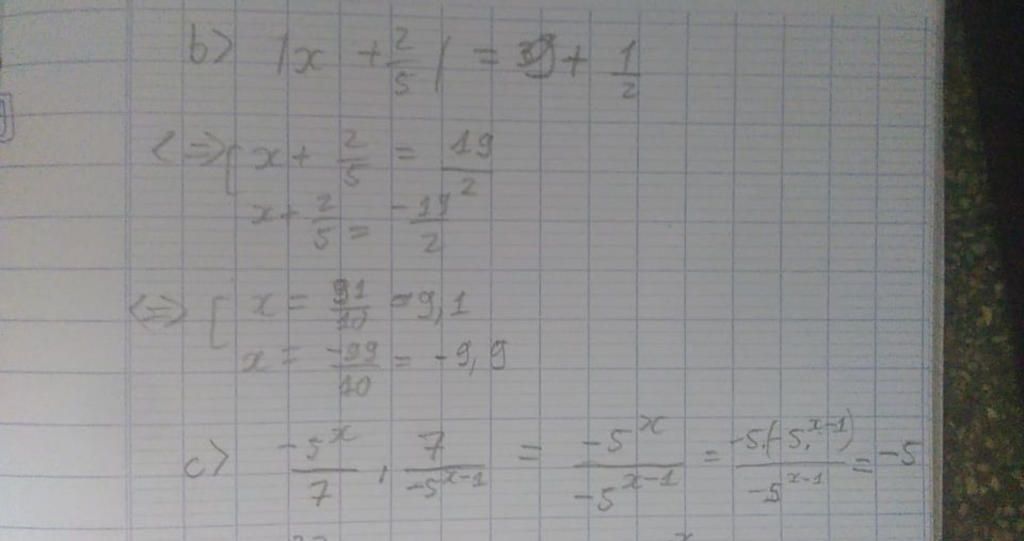 b) |x + 2/5| = 9 + 1/2
<=> [ x + 2/5 = 19/2
x + 2/5 = -19/2
<=> [ x = 91/10 = 9,1
x = -99/10 = -9,9
c) -5^x/7 . 7/-5^{x-1} = -5^x/-5^{x-1} = -5.(-5^{x-1})/-5^{x-1} = -5